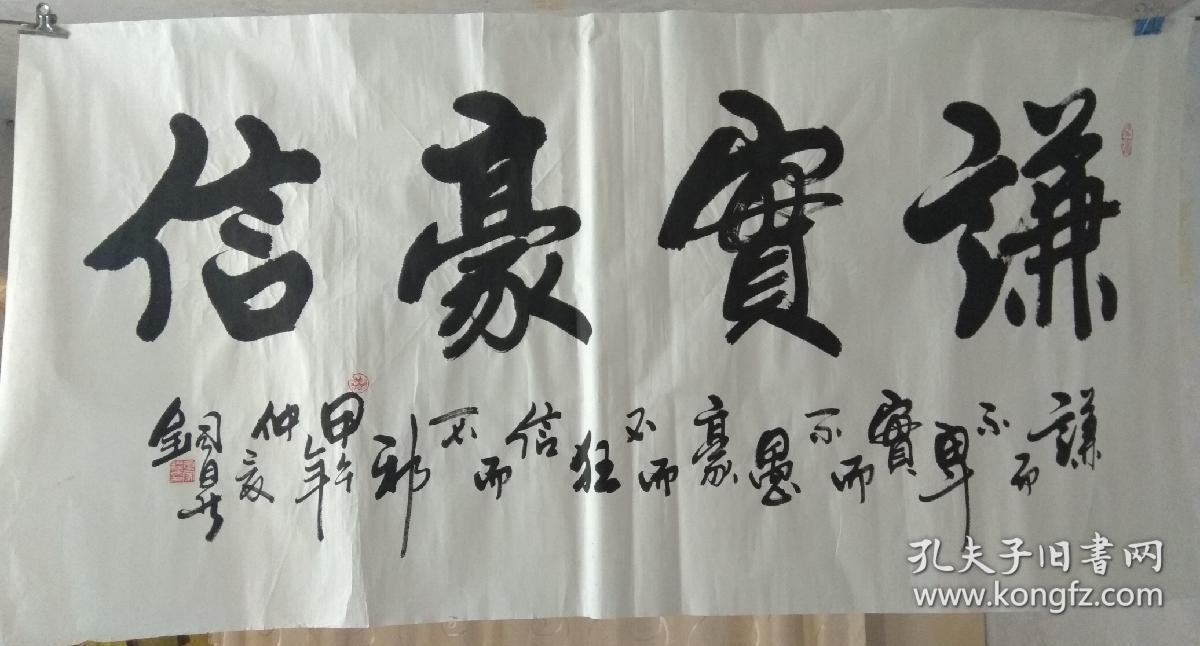 謙實豪信
謙而不卑實而不愚豪而不狂信而不邪
甲午年仲夏
孔夫子旧書网
www.kongfz.com